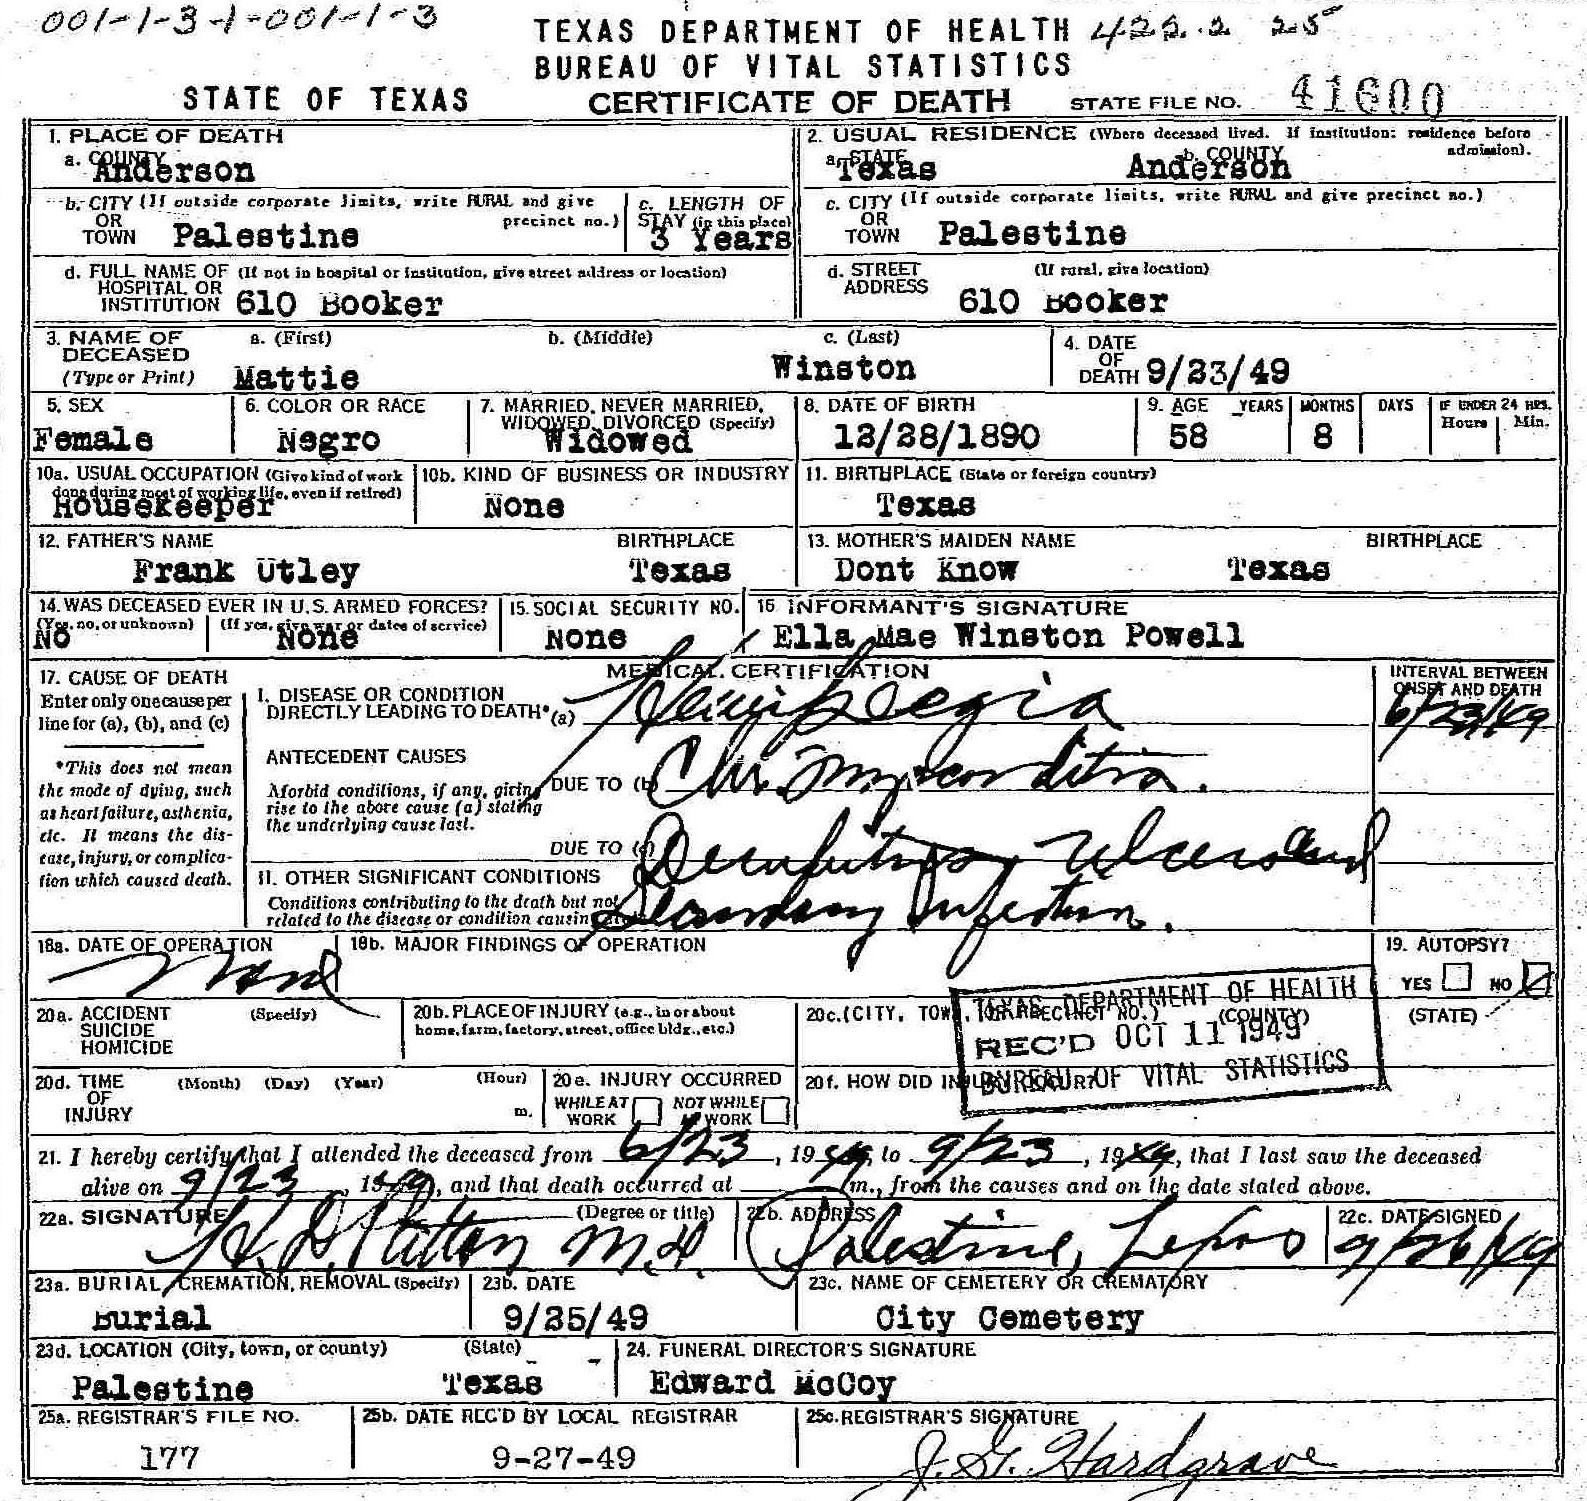 001-1-3-1-001-1-3
TEXAS DEPARTMENT OF HEALTH 422.2 25
BUREAU OF VITAL STATISTICS
STATE OF TEXAS CERTIFICATE OF DEATH STATE FILE NO. 41600
1. PLACE OF DEATH
a. COUNTY
Anderson
2. USUAL RESIDENCE (Where deceased lived. If institution: residence before admission).
a. STATE b. COUNTY
Texas Anderson
b. CITY (If outside corporate limits, write RURAL and give precinct no.)
OR
TOWN Palestine
c. LENGTH OF
STAY (in this place)
3 Years
c. CITY (If outside corporate limits, write RURAL and give precinct no.)
OR
TOWN Palestine
d. FULL NAME OF (If not in hospital or institution, give street address or location)
HOSPITAL OR
INSTITUTION 610 Booker
d. STREET (If rural, give location)
ADDRESS 610 Booker
3. NAME OF a. (First) b. (Middle) c. (Last)
DECEASED
(Type or Print) Mattie Winston
4. DATE
OF
DEATH 9/23/49
5. SEX
Female
6. COLOR OR RACE
Negro
7. MARRIED, NEVER MARRIED,
WIDOWED, DIVORCED (Specify)
Widowed
8. DATE OF BIRTH
12/28/1890
9. AGE YEARS MONTHS DAYS IF UNDER 24 HRS.
Hours Min.
58 8
10a. USUAL OCCUPATION (Give kind of work
done during most of working life, even if retired)
Housekeeper
10b. KIND OF BUSINESS OR INDUSTRY
None
11. BIRTHPLACE (State or foreign country)
Texas
12. FATHER'S NAME BIRTHPLACE
Frank Utley Texas
13. MOTHER'S MAIDEN NAME BIRTHPLACE
Dont Know Texas
14. WAS DECEASED EVER IN U.S. ARMED FORCES?
(Yes, no, or unknown) (If yes, give war or dates of service)
No None
15. SOCIAL SECURITY NO.
None
16. INFORMANT'S SIGNATURE
Ella Mae Winston Powell
17. CAUSE OF DEATH
Enter only one cause per
line for (a), (b), and (c)
*This does not mean
the mode of dying, such
as heart failure, asthenia,
etc. It means the dis-
ease, injury, or complica-
tion which caused death.
MEDICAL CERTIFICATION
I. DISEASE OR CONDITION
DIRECTLY LEADING TO DEATH* (a) Hemiplegia
ANTECEDENT CAUSES
Morbid conditions, if any, giving
rise to the above cause (a) stating
the underlying cause last.
DUE TO (b) Chr. Myocarditis.
DUE TO (c) Decubitus Ulcers and
II. OTHER SIGNIFICANT CONDITIONS
Conditions contributing to the death but not
related to the disease or condition causing
Secondary Infection.
INTERVAL BETWEEN
ONSET AND DEATH
6/23/49
18a. DATE OF OPERATION
None
18b. MAJOR FINDINGS OF OPERATION
19. AUTOPSY?
YES NO
20a. ACCIDENT (Specify)
SUICIDE
HOMICIDE
20b. PLACE OF INJURY (e.g., in or about
home, farm, factory, street, office bldg., etc.)
20c. (CITY, TOWN, OR PRECINCT NO.) (COUNTY) (STATE)
TEXAS DEPARTMENT OF HEALTH
REC'D OCT 11 1949
BUREAU OF VITAL STATISTICS
20d. TIME (Month) (Day) (Year) (Hour)
OF
INJURY m.
20e. INJURY OCCURRED
WHILE AT NOT WHILE
WORK WORK
20f. HOW DID INJURY OCCUR?
21. I hereby certify that I attended the deceased from 6/23, 1949, to 9/23, 1949, that I last saw the deceased
alive on 9/23, 1949, and that death occurred at m., from the causes and on the date stated above.
22a. SIGNATURE (Degree or title)
Patton M.D.
22b. ADDRESS
Palestine, Texas
22c. DATE SIGNED
9/26/49
23a. BURIAL, CREMATION, REMOVAL (Specify)
Burial
23b. DATE
9/25/49
23c. NAME OF CEMETERY OR CREMATORY
City Cemetery
23d. LOCATION (City, town, or county) (State)
Palestine Texas
24. FUNERAL DIRECTOR'S SIGNATURE
Edward McCoy
25a. REGISTRAR'S FILE NO.
177
25b. DATE REC'D BY LOCAL REGISTRAR
9-27-49
25c. REGISTRAR'S SIGNATURE
J. G. Hardgrave